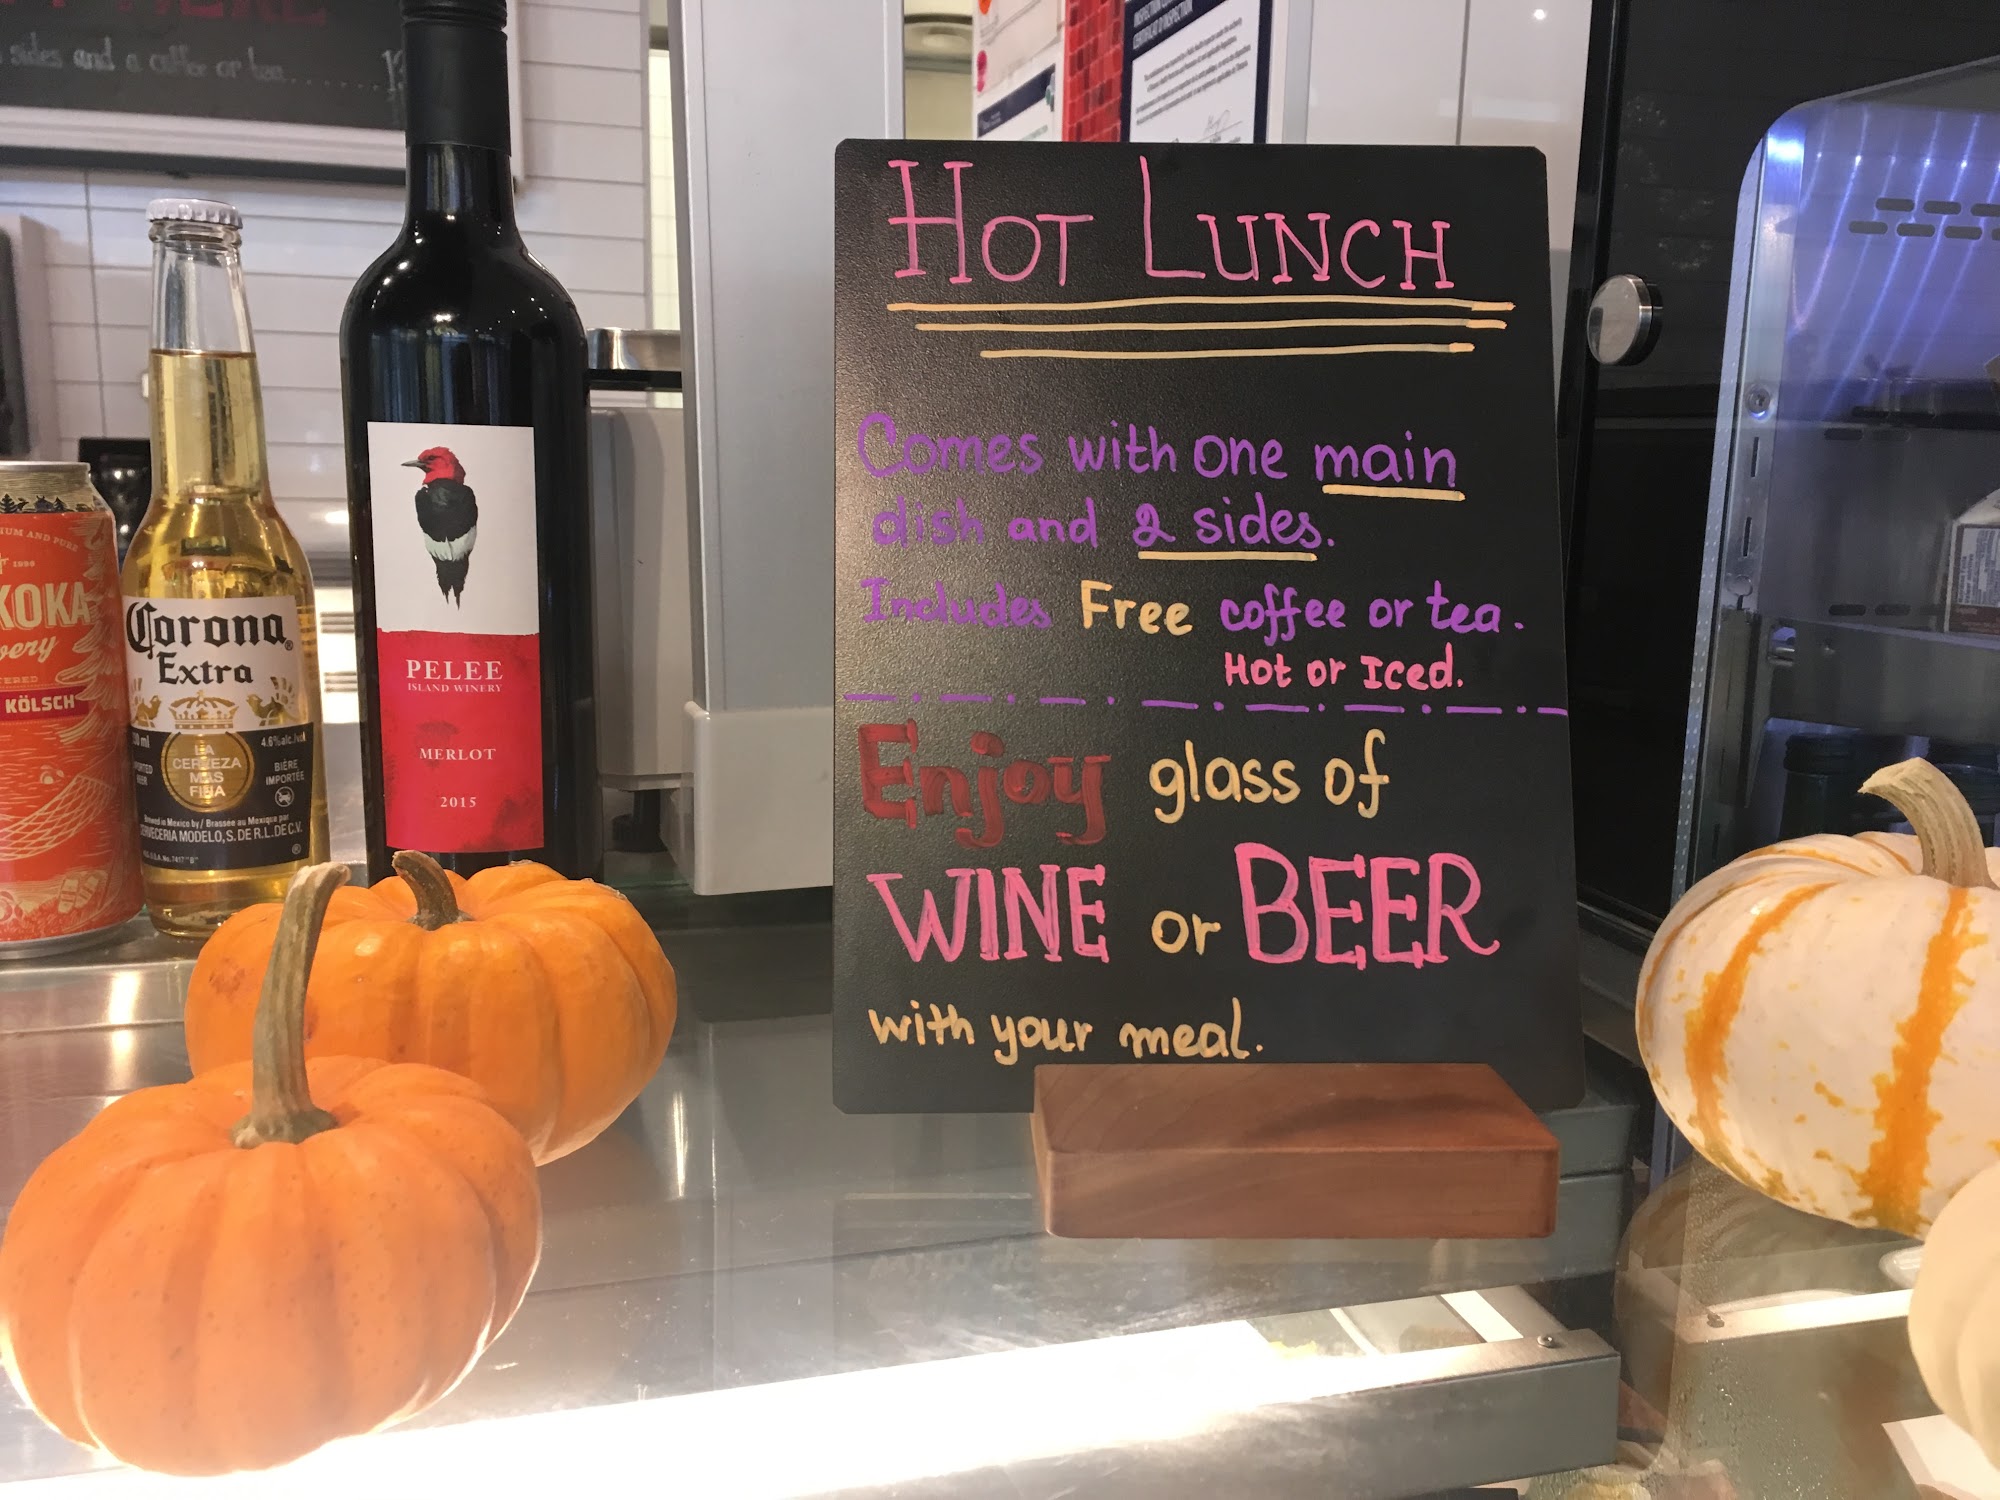 sides and a coffee or tea.......
INSPECTION
CERTIFICAT D'INSPECTION
HOT LUNCH
Comes with one main
dish and 2 sides.
Includes Free coffee or tea.
Hot or Iced.
Enjoy glass of
WINE or BEER
with your meal.
PELEE
ISLAND WINERY
MERLOT
2015
Corona
Extra
LA
CERVEZA
MAS
FINA
4.6% alc./vol
BIÈRE
IMPORTÉE
Brewed in Mexico by / Brassée au Mexique par
CERVECERIA MODELO, S. DE R.L. DE C.V.
UM AND PURE
1996
KOKA
ery
TERED
KÖLSCH